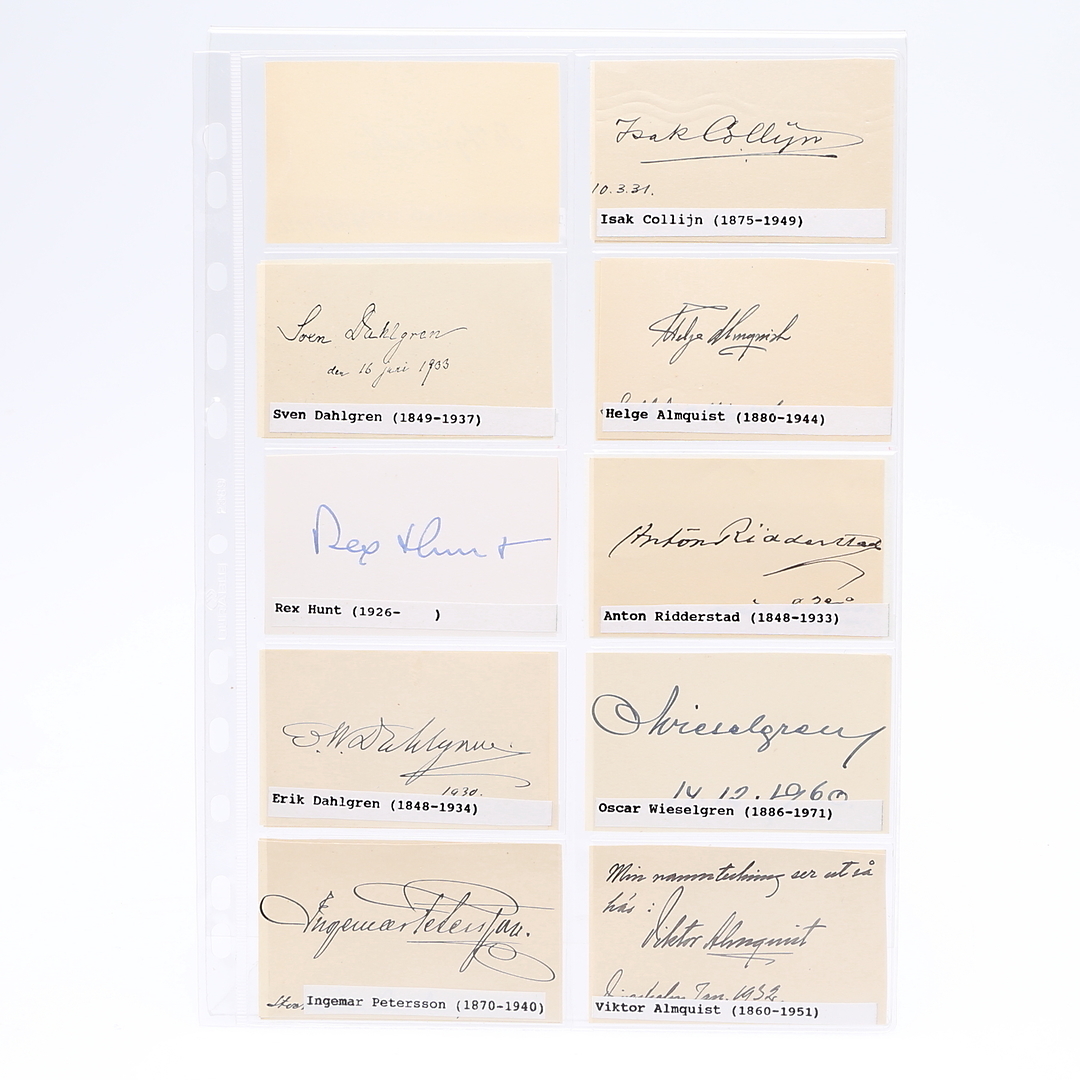 Isak Collijn
10.3.31.
Isak Collijn (1875-1949)
Sven Dahlgren
den 16 juni 1933
Sven Dahlgren (1849-1937)
Helge Almquist
Helge Almquist (1880-1944)
Rex Hunt
Rex Hunt (1926-    )
Anton Ridderstad
Anton Ridderstad (1848-1933)
E.W. Dahlgren.
1930.
Erik Dahlgren (1848-1934)
OWieselgren
14.12.1960
Oscar Wieselgren (1886-1971)
Ingemar Petersson.
Ingemar Petersson (1870-1940)
Min namnteckning ser ut så
här :
Viktor Almquist
Jan. 1932.
Viktor Almquist (1860-1951)